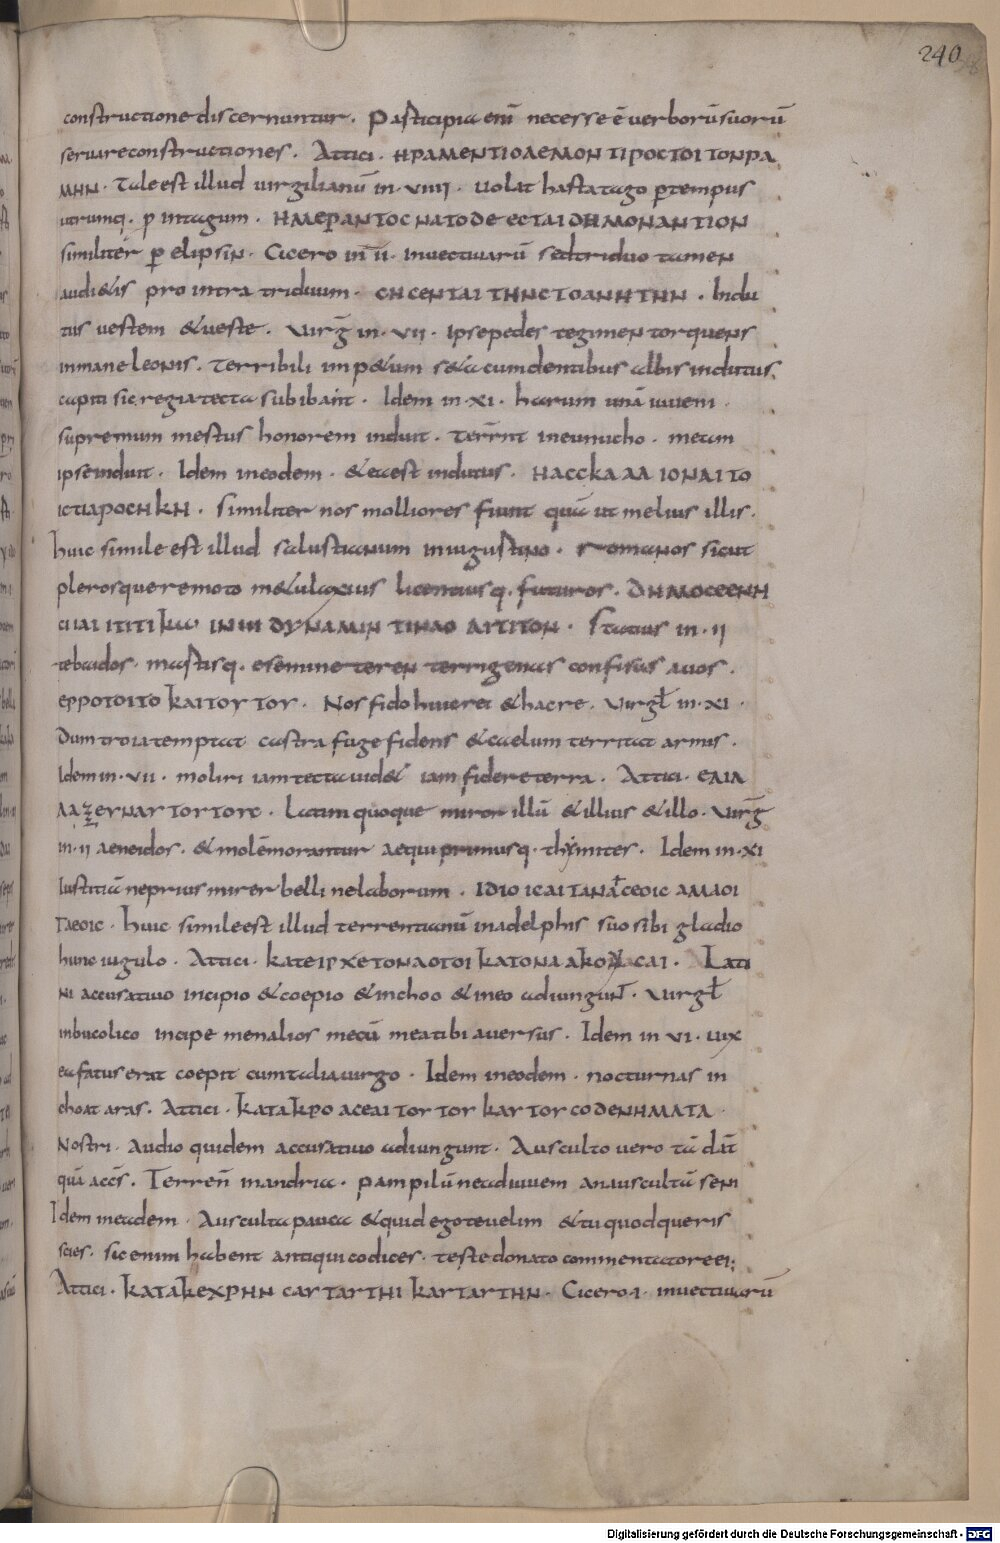 240
constructione discernuntur. Participia enī necesse ē verborū suorū
servare constructiones. Attici. ΗΡΑΜΕΝΤΙΟΛΕΜΟΝ ΤΙΡΟΣΤΟΙ ΤΟΝΡΑ
ΜΗΝ. Tale est illud virgilianū in. viiii. volat hasta tago ꝑ tempus
utrumq. ꝓ in tagum. ΗΜΕΡΑΝΤΟC ΝΑΤΟDΕ ΕCΤΑΙ DΗΜΟΝΑΝΤΙΟΝ
similiter ꝑ elipsin. Cicero in ii. invectivarū sed triduo tamen
audietis pro intra triduum. CΗCΕΝΤΑΙ ΤΗΝCΤΟΑΝΗΤΗΝ. Indu
tus vestem & veste. Virḡ in. vii. Ipse pedes tegimen torquens
inmane leonis. Terribili impexum seta cum dentibus albis indutus
capiti sic regia tecta subibant. Idem in. xi. harum unā iuveni.
supremum mestus honorem induit. Terēnt in eunucho. metam
ipse induit. Idem in eodem. & ea est indutus. ΗΑCCΚΑ ΑΛ ΙΟΝΑΙ ΤΟ
ΙCΤΙΑΡΟCΗΚΗ. Similiter nos molliores fiunt quā ut melius illis.
huic simile est illud salustianum in iugustino. romanos sicut
plerosque remoto metu laxius licentiusq. futuros. DΗΜΟCΕCΝΗ
CΙΙΑΙ ΙΤΙΤΙΚω ΙΝ ΙΙΙ DΥΝΑΜΙΝ ΤΙΝΑΟ ΑΙΤΙΤΟΝ. Statius in. ii
tebaidos. mastisq. e semine teren terrigenas confisus avos.
ΕΡΡΟΤΟΙΤΟ ΚΑΙ ΤΟΥ ΤΟΥ. Nos fido huic rei & hac re. Virgł in. xi.
Dum troia temptat castra fuge fidens & caelum territat armis.
Idem in. vii. moliri iam tecta videt iam fidere terra. Attici. ΕΛΙΑ
ΛΑΖΕΥΝΑΥ ΤΟΥΤΟΙC. Latim quoque miror illū & illius & illo. Virḡ
in. ii aeneidos. & molē mirantur aequi primusq. thymites. Idem in. xi
Iustitiā ne prius mirer belli ne laborum. ΙDΙΟ ΙCΑΙ ΤΑΝΑCΕΟΙC ΑΜΑΟΙ
ΓΑΕΟΙC. Huic simile est illud terrentianū in adelphis suo sibi gladio
hunc iugulo. Attici. ΚΑΤΕΙΡΧΕΤΟΝΑΟΤΟΙ ΚΑΤΟΝΑ ΑΚΟΝΑCΑΙ. Lati
ni accusativo incipio & coepio & inchoo & ineo adiungunt̄. Virgł
in bucolico incipe menalios mecū mea tibi aversus. Idem in vi. vix
ea fatus erat coepit cum talia virgo. Idem in eodem. nocturnas in
choat aras. Attici. ΚΑΤΑΚΡΟ ΑCΕΑΙ ΤΟΥ ΤΟΥ ΚΑΥ ΤΟΥ CΟDΕΝΗΜΑΤΑ.
Nostri. Audio quidem accusativo adiungunt. Ausculto vero tā dat̄
quā accs̄. Terren̄ in andria. Pampilū ne adiuvem an auscultē seni
Idem in eadem. Ausculta pauca & quid ego te velim & tu quod queris
scies. sic enim habent antiqui codices. teste donato commentatore ei;
Attici. ΚΑΤΑΚΕΧΡΗΝ CΑΥΤΑΥΤΗΙ ΚΑΥΤΑΥΤΗΝ. Cicero. i. invectivarū
Digitalisierung gefördert durch die Deutsche Forschungsgemeinschaft - DFG